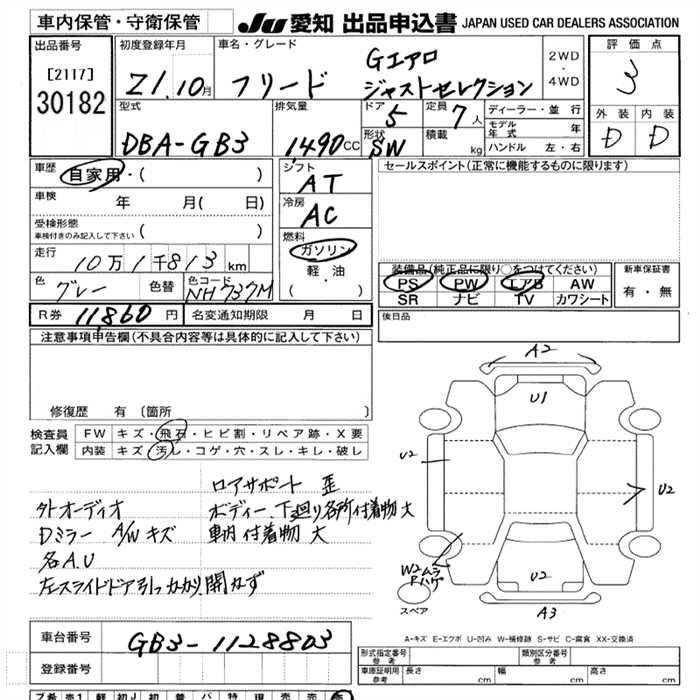 車内保管・守衛保管
JU 愛知 出品申込書 JAPAN USED CAR DEALERS ASSOCIATION
出品番号
[2117]
30182
初度登録年月
21.10月
車名・グレード
フリード
Gエアロ
ジャストセレクション
2WD
・
4WD
評価点
3
外装 内装
D D
型式
DBA-GB3
排気量
1,490CC
ドア
5
形状
SW
定員
7人
積載
kg
ディーラー・並 行
モデル年式 年
ハンドル 左・右
車歴
自家用・( )
車検
年 月( 日)
受検形態
車検付きのみ記入して下さい
( )
走行
10万1千813km
色
グレー
色替
色コード
NH737M
シフト
AT
冷房
AC
燃料
ガソリン
軽・油
( ・ )
セールスポイント(正常に機能するものに限ります)
装備品(純正品に限り○をつけてください)
PS PW エアB AW
SR ナビ TV カワシート
新車保証書
有・無
R券 11,860円
名変通知期限 月 日
後日品
注意事項申告欄(不具合内容等は具体的に記入して下さい)
修復歴 有 (箇所 )
検査員
記入欄
FW キズ・飛石・ヒビ割・リペア跡・X要
内装 キズ・汚レ・コゲ・穴・スレ・キレ・破レ
ロアサポート 歪
外オーディオ
ボディー、下廻り各所付着物大
Dミラー A/W キズ
車内 付着物 大
名A.U
左スライドドア引っかかり、開わず
A2
U1
U2
U2
W2ムラ
Pハゲ
U2
スペア
A3
A-キズ E-エクボ U-凹み W-補修跡 S-サビ C-腐食 XX-交換済
車台番号
GB3-1128803
登録番号
形式指定番号
参考
類別区分番号
参考
車庫証明用
参考
長さ cm 幅 cm 高さ cm